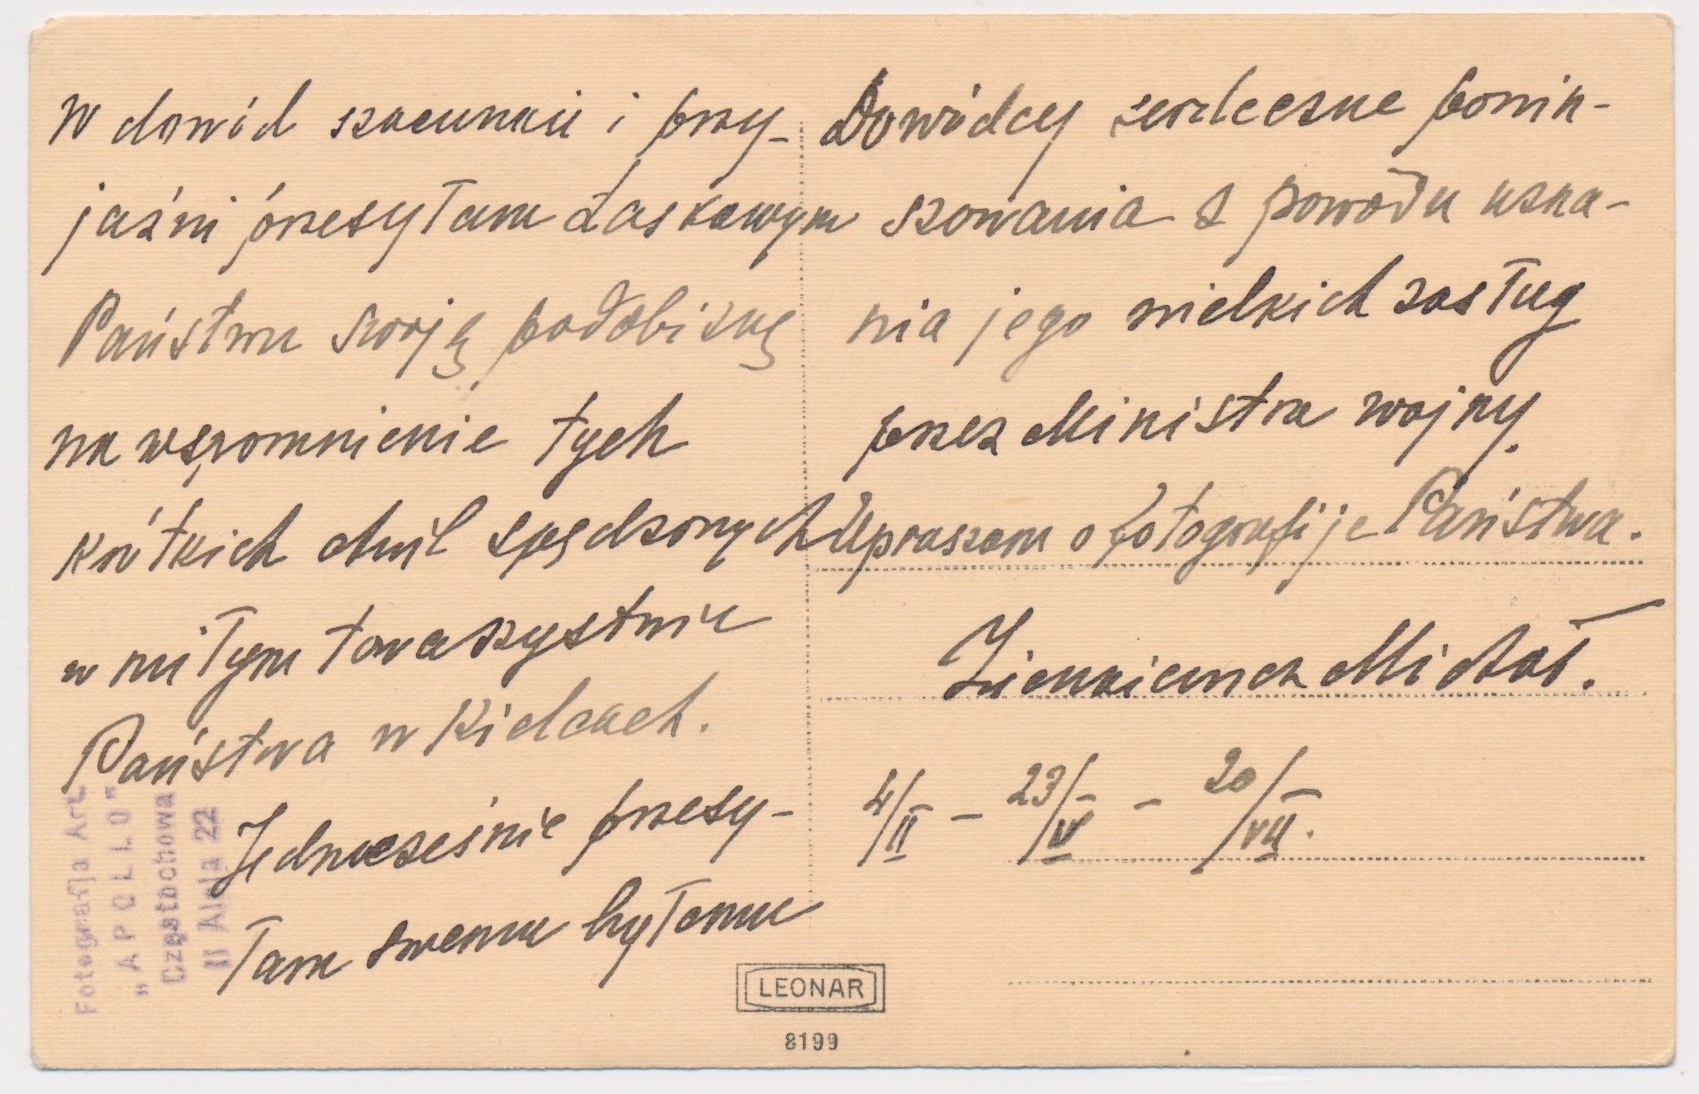 W dowód szacunku i przy-
jaźni przesyłam Łaskawym
Państwu swoją podobiznę
na wspomnienie tych
krótkich chwil spędzonych
w miłym towarzystwie
Państwa w Kielcach.
Jednocześnie przesy-
łam swemu byłemu
Dowódcy serdeczne powin-
szowania z powodu uzna-
nia jego wielkich zasług
przez Ministra wojny.
Upraszam o fotografije Państwa.
Michał.
4/II – 23/V – 20/VII.
Fotografja Art.
„APOLLO"
Częstochowa
II Aleja 22
LEONAR
8199